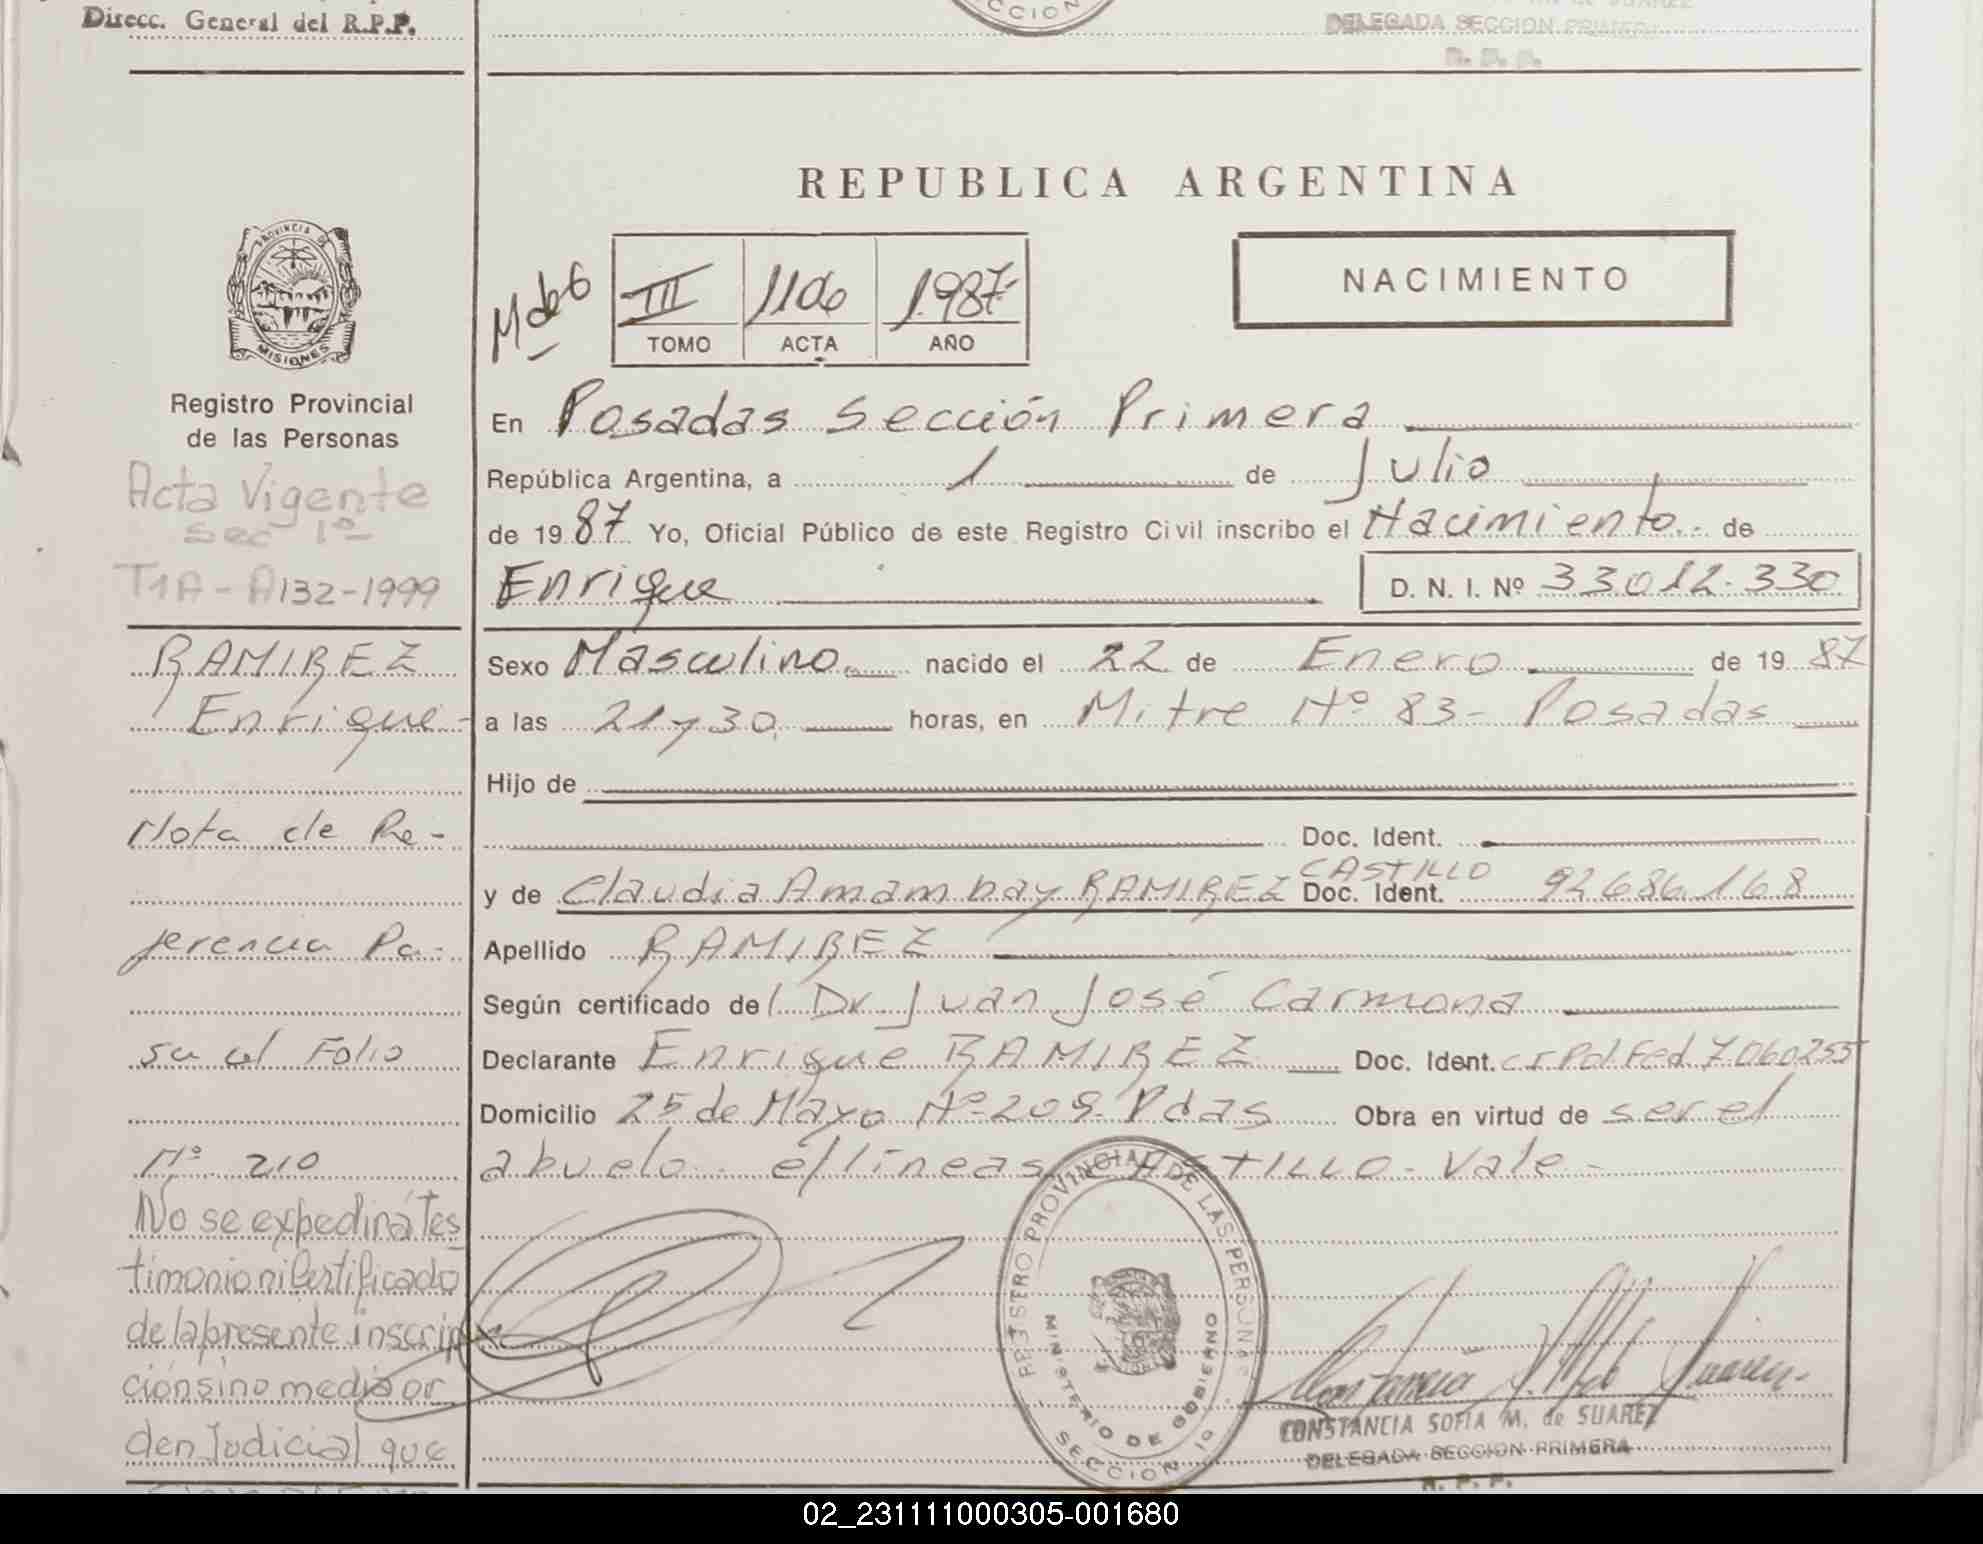 Direcc. General del R.P.P.
CCION
DELEGADA SECCION PRIMERA
R. P. P.
REPUBLICA ARGENTINA
PROVINCIA DE
MISIONES
III 1106 1.987-
TOMO ACTA AÑO
NACIMIENTO
Registro Provincial
de las Personas
Acta Vigente
sec 1º
T1A - A132-1999
RAMIREZ
Enrique-
Nota de Re-
ferencia Pa-
sa al Folio
Nº 210
No se expedirá tes
timonio ni certificado
de la presente inscrip
ción sino media or
den Judicial que
En Posadas Sección Primera
República Argentina, a 1 de Julio
de 19 87 Yo, Oficial Público de este Registro Civil inscribo el Nacimiento de
Enrique D. N. I. Nº 33.012.330
Sexo Masculino nacido el 22 de Enero de 19 87
a las 21 y 30 horas, en Mitre Nº 83- Posadas
Hijo de
Doc. Ident.
CASTILLO
y de Claudia Amambay RAMIREZ Doc. Ident. 92.686.168
Apellido RAMIREZ
Según certificado del Dr. Juan José Carmona
Declarante Enrique RAMIREZ Doc. Ident. C.I. Pol. Fed. 7.060.255
Domicilio 25 de Mayo Nº 209- Pdas Obra en virtud de ser el
abuelo- e/líneas CASTILLO- Vale-
REGISTRO PROVINCIAL DE LAS PERSONAS
MINISTERIO DE GOBIERNO
SECCION 1a
CONSTANCIA SOFIA M. de SUAREZ
DELEGADA SECCION PRIMERA
R. P. P.
02_231111000305-001680